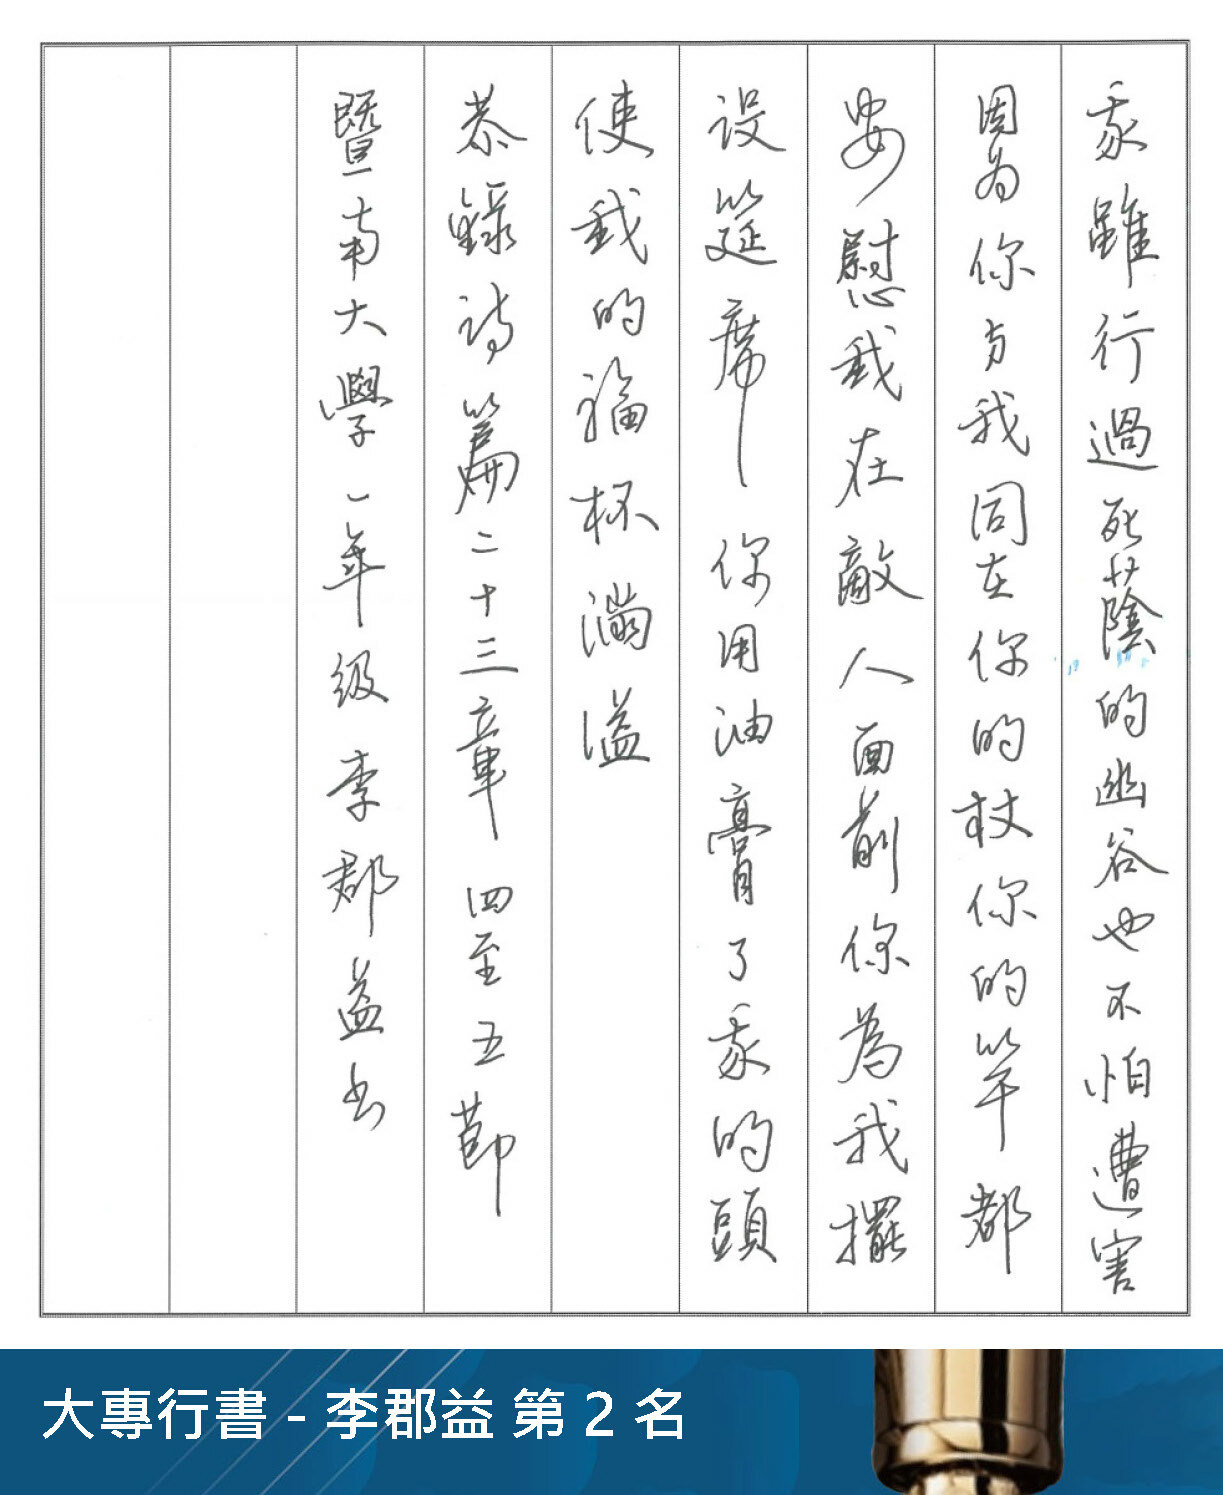 我雖行過死蔭的幽谷也不怕遭害
因為你与我同在你的杖你的竿都
安慰我在敵人面前你為我擺
设筵席你用油膏了我的頭
使我的福杯滿溢
恭錄詩篇二十三章四至五節
暨南大學一年級李郡益书
大專行書 - 李郡益 第 2 名